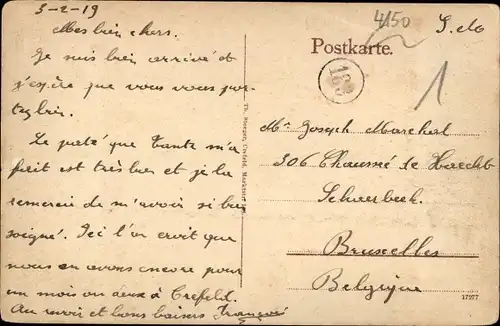 3-2-19
Mes bien chers.
Je suis bien arrivé et
j'espère que vous vous por-
tez bien.
Le paté que Tante m'a
fait est très bon et je la
remercie de m'avoir si bien
soigné. Ici l'on croit que
nous en avons encore pour
un mois ou deux à Crefeld.
Au revoir et bons baisers François
Th. Crefeld,
4150
S.M
Postkarte.
1
Mr Joseph Marchal
306 Chaussée de Haecht
Schaerbeek.
Bruxelles
Belgique
17277